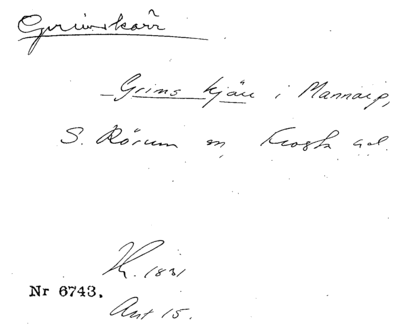 Grimskärr
Grims kjär i Mannarp,
S. Rörum sn, Frosta hd.
1831
Nr 6743.
Ant 15.